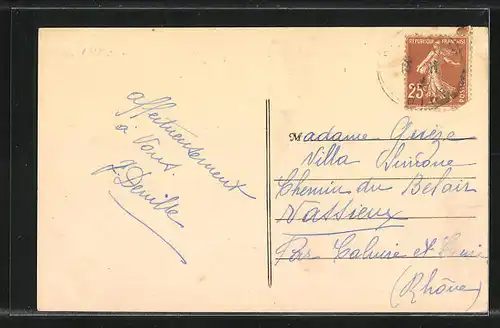 affectueusement
à Vous.
J. Deville
REPUBLIQUE FRANÇAISE
25
POSTES
M
Madame
Villa Simone
Chemin du Belair
Vassieux
Par Caluire et Cuire
(Rhône)